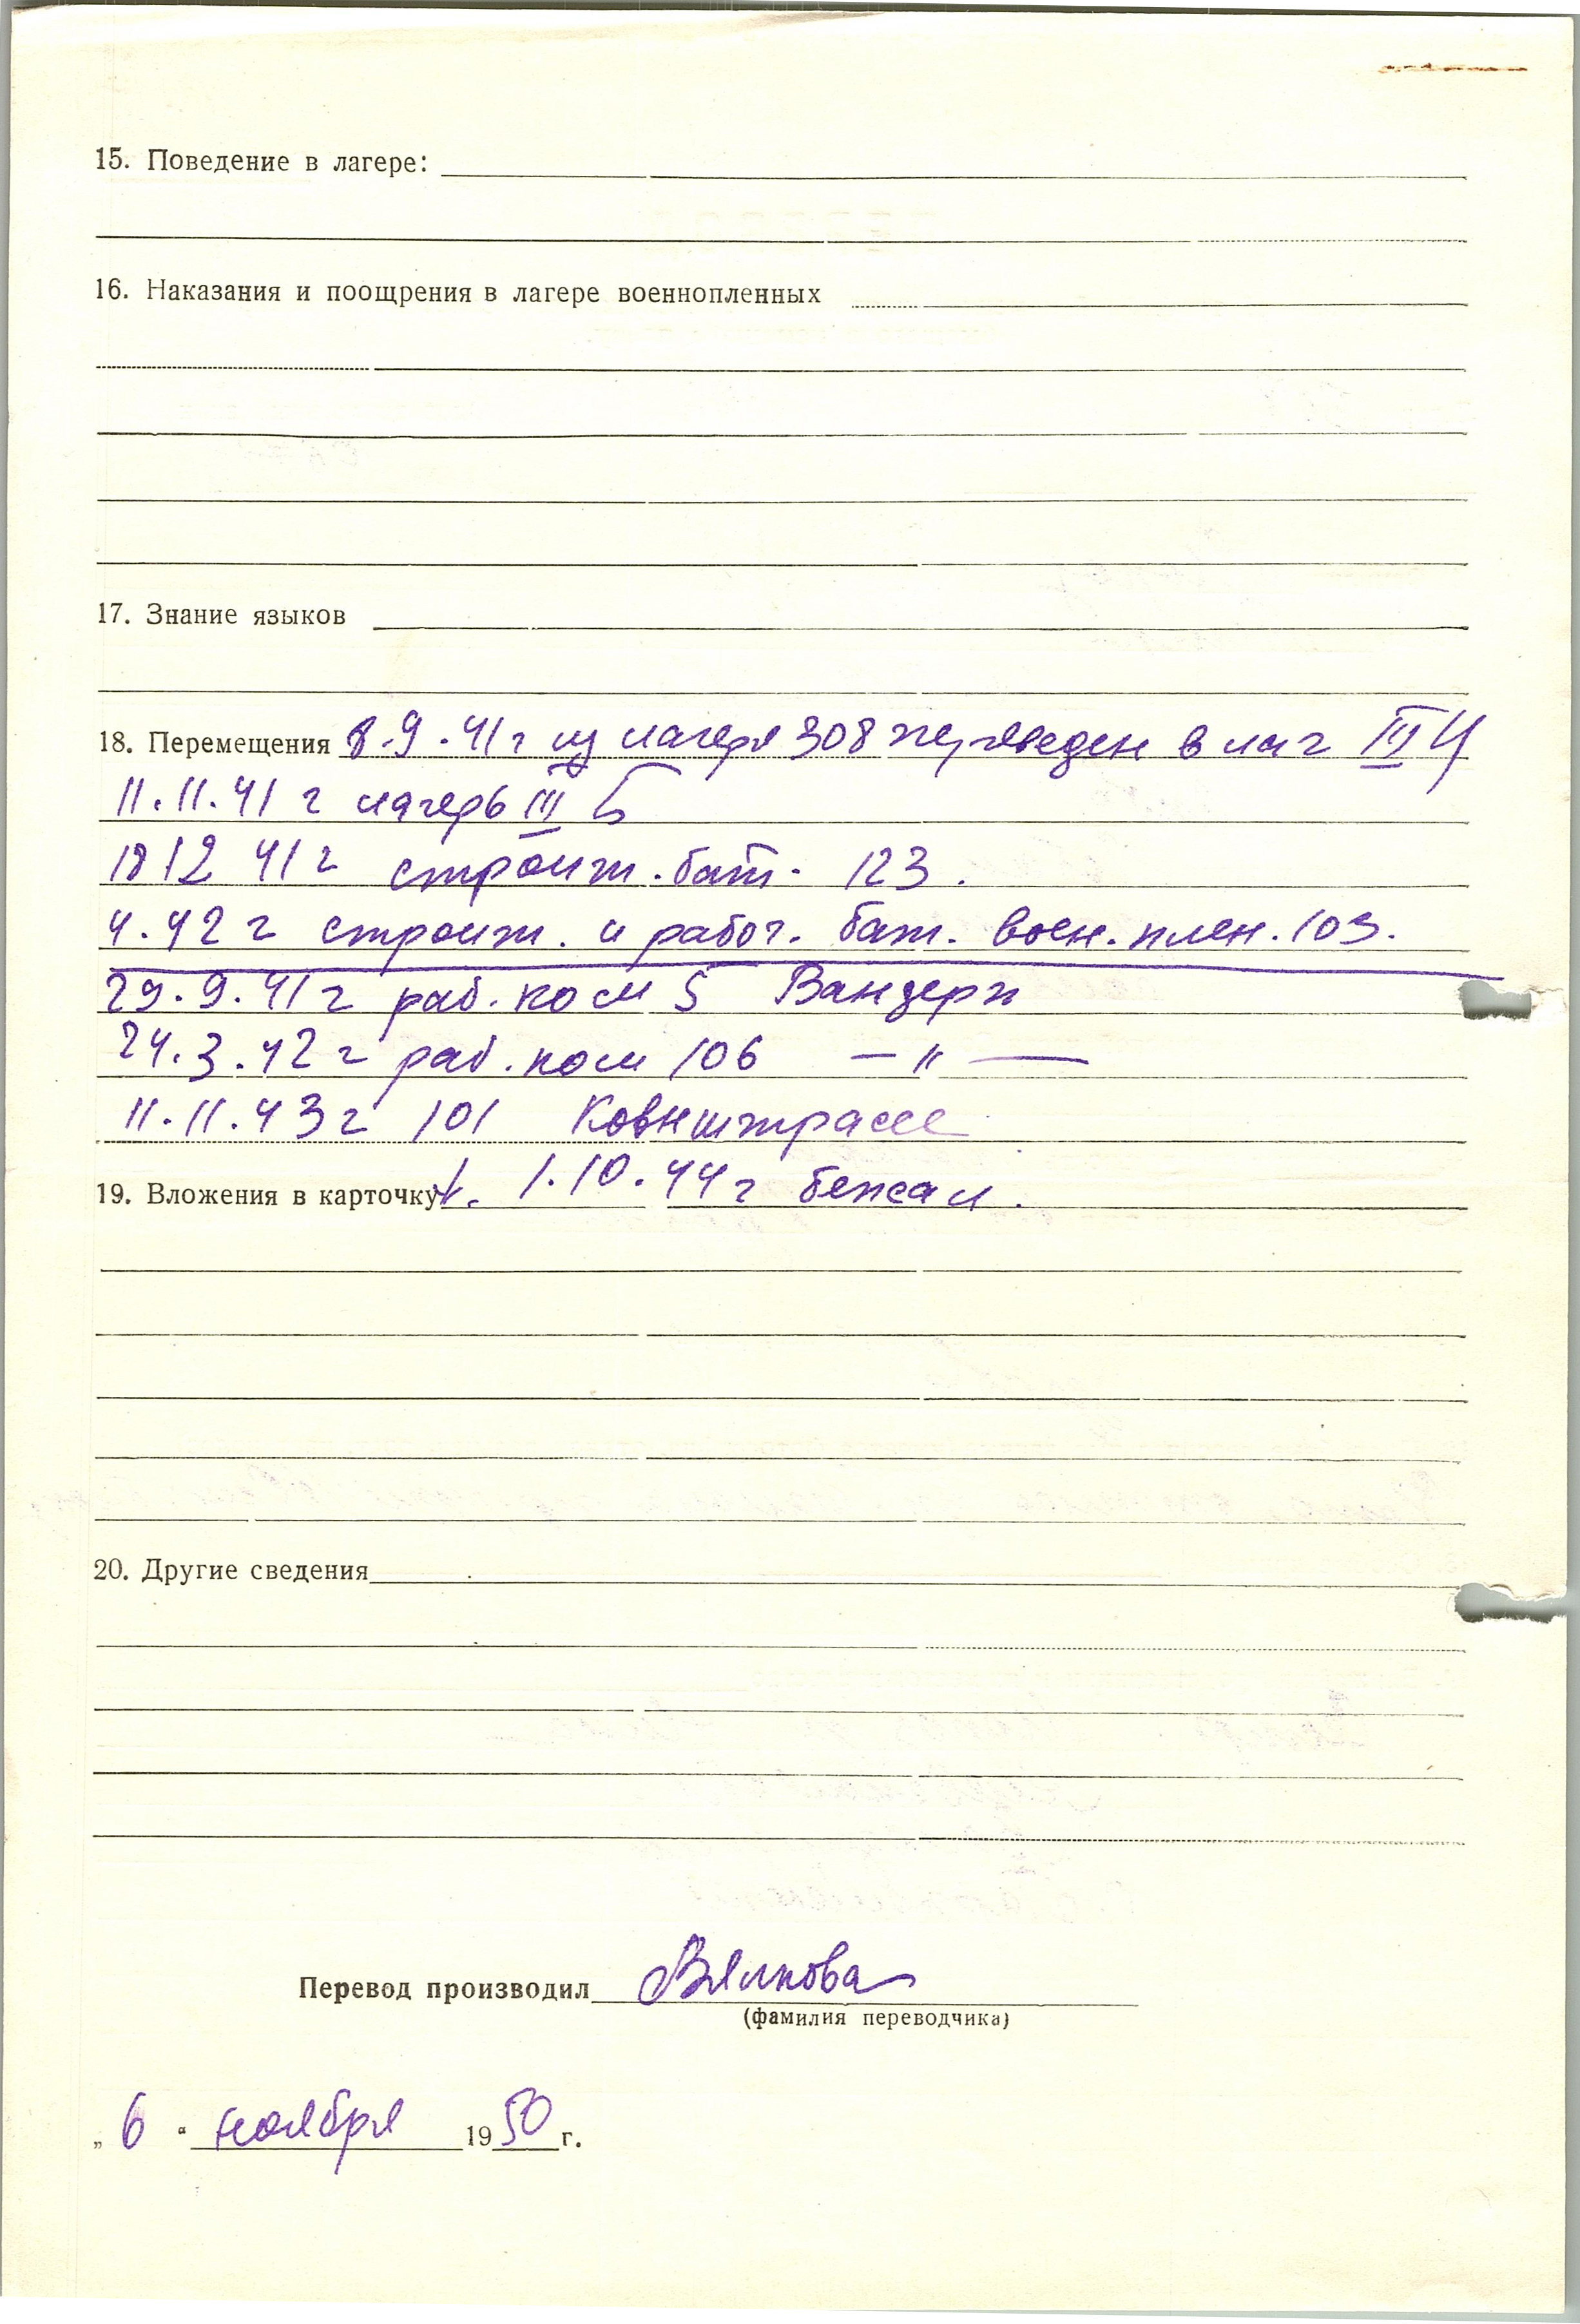 15. Поведение в лагере:
16. Наказания и поощрения в лагере военнопленных
17. Знание языков
18. Перемещения 8.9.41г из лагеря 308 переведен в лаг III Ц
11.11.41 г лагерь III Б
18 12 41 г строит. бат. 123.
4.42 г строит. и рабоч. бат. воен. плен. 103.
29.9.41 г раб. ком 5 Вандерн
24.3.42 г раб. ком 106 — " —
11.11.43 г 101 Ковништрассе
19. Вложения в карточку 1.10.44 г бежал.
20. Другие сведения
Перевод производил Вялкова
(фамилия переводчика)
„ 6 “ ноября 1950 г.